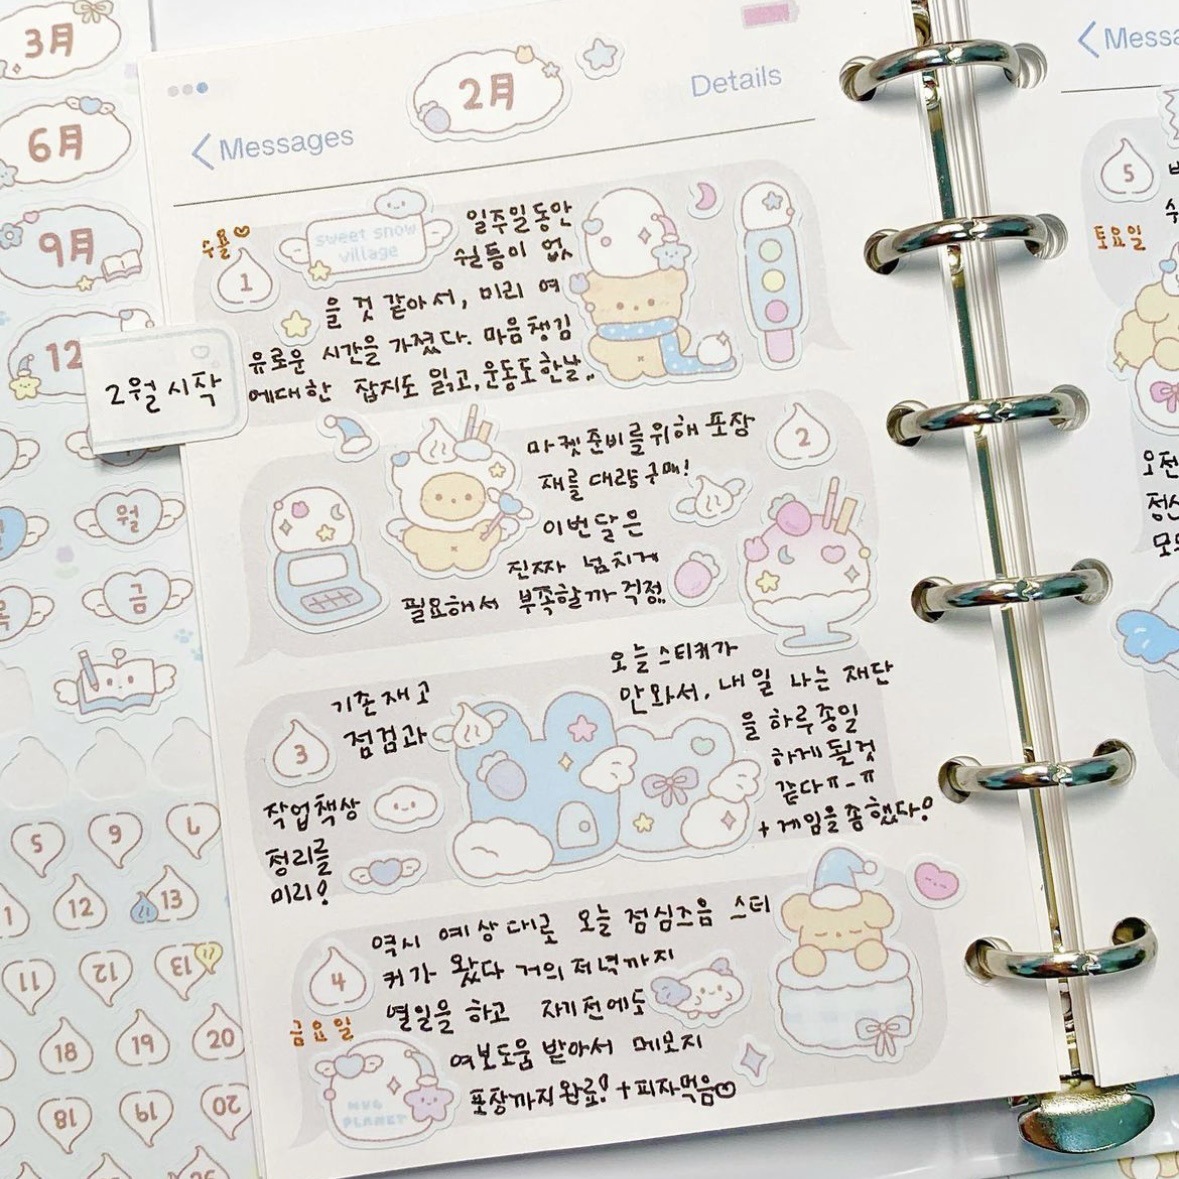 3月
6月
9月
12
2월 시작
월
금
5
6
7
12
13
11
12
13
18
19
20
18
19
20
2月
Details
Messages
수요일
1
sweet snow
village
일주일동안
쉴틈이 없
을 것 같아서, 미리 여
유로운 시간을 가졌다. 마음챙김
에대한 잡지도 읽고, 운동도한날..
2
마켓준비를위해 포장
재를 대량구매!
이번달은
진짜 넘치게
필요해서 부족할까 걱정..
3
기존재고
점검과
작업책상
정리를
미리!
오늘 스티커가
안와서, 내일 나는 재단
을 하루종일
하게 될것
같다ㅠ-ㅠ
+ 게임을좀했다!
4
금요일
역시 예상대로 오늘 점심즈음 스티
커가 왔다 거의저녁까지
열일을 하고 자기전에도
여보도움 받아서 메모지
포장까지완료! +피자먹음
HUG
PLANET
Messa
5
토요일
오전
정신
모드